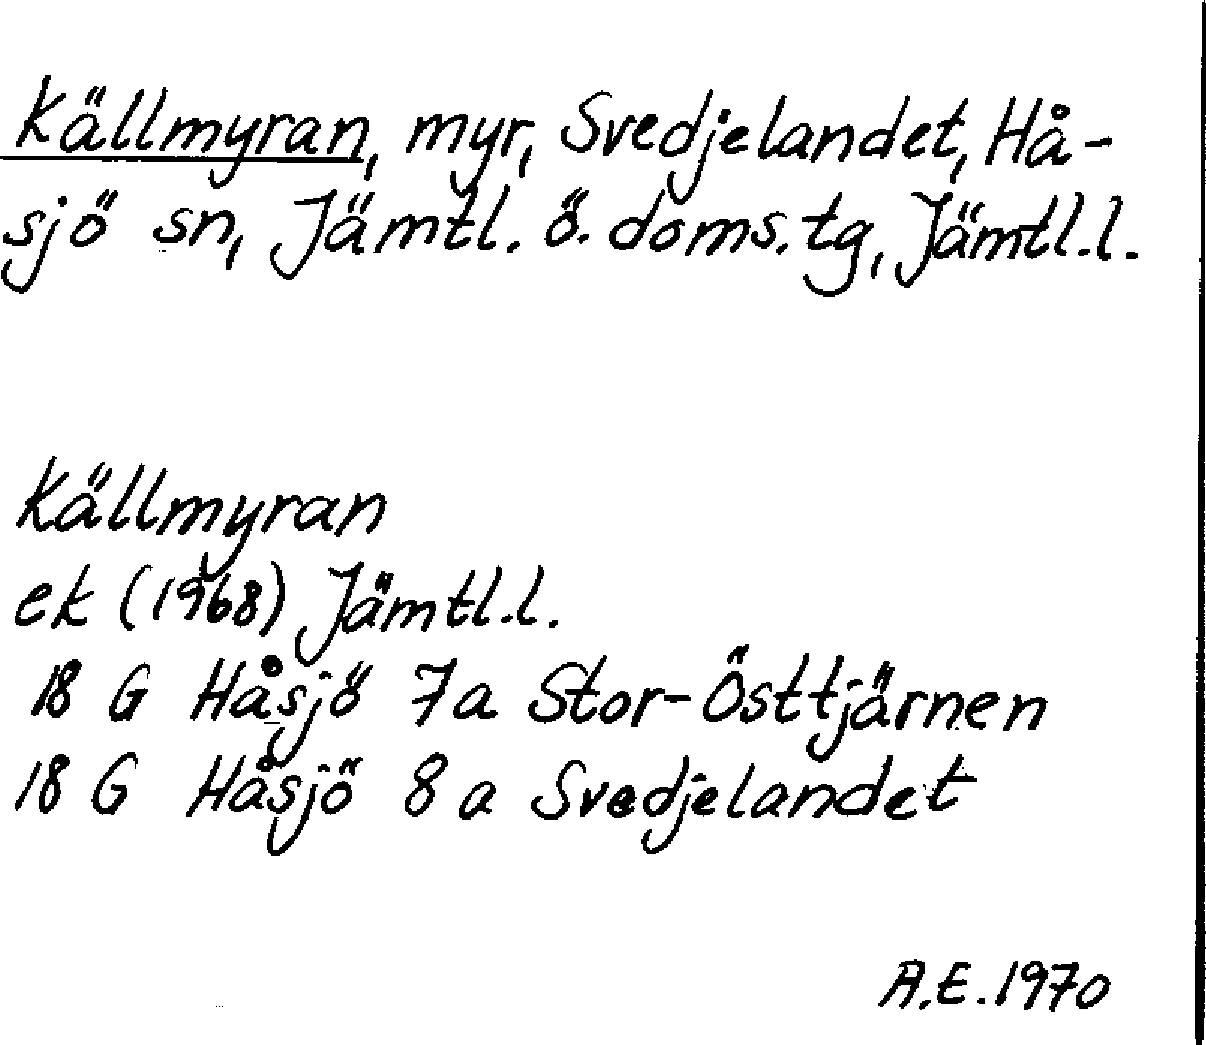 Källmyran, myr, Svedjelandet, Hå-
sjö sn, Jämtl. ö. doms. tg, Jämtl. l.
Källmyran
ek (1968) Jämtl. l.
18 G Håsjö 7a Stor-Östtjärnen
18 G Håsjö 8a Svedjelandet
A.E. 1970